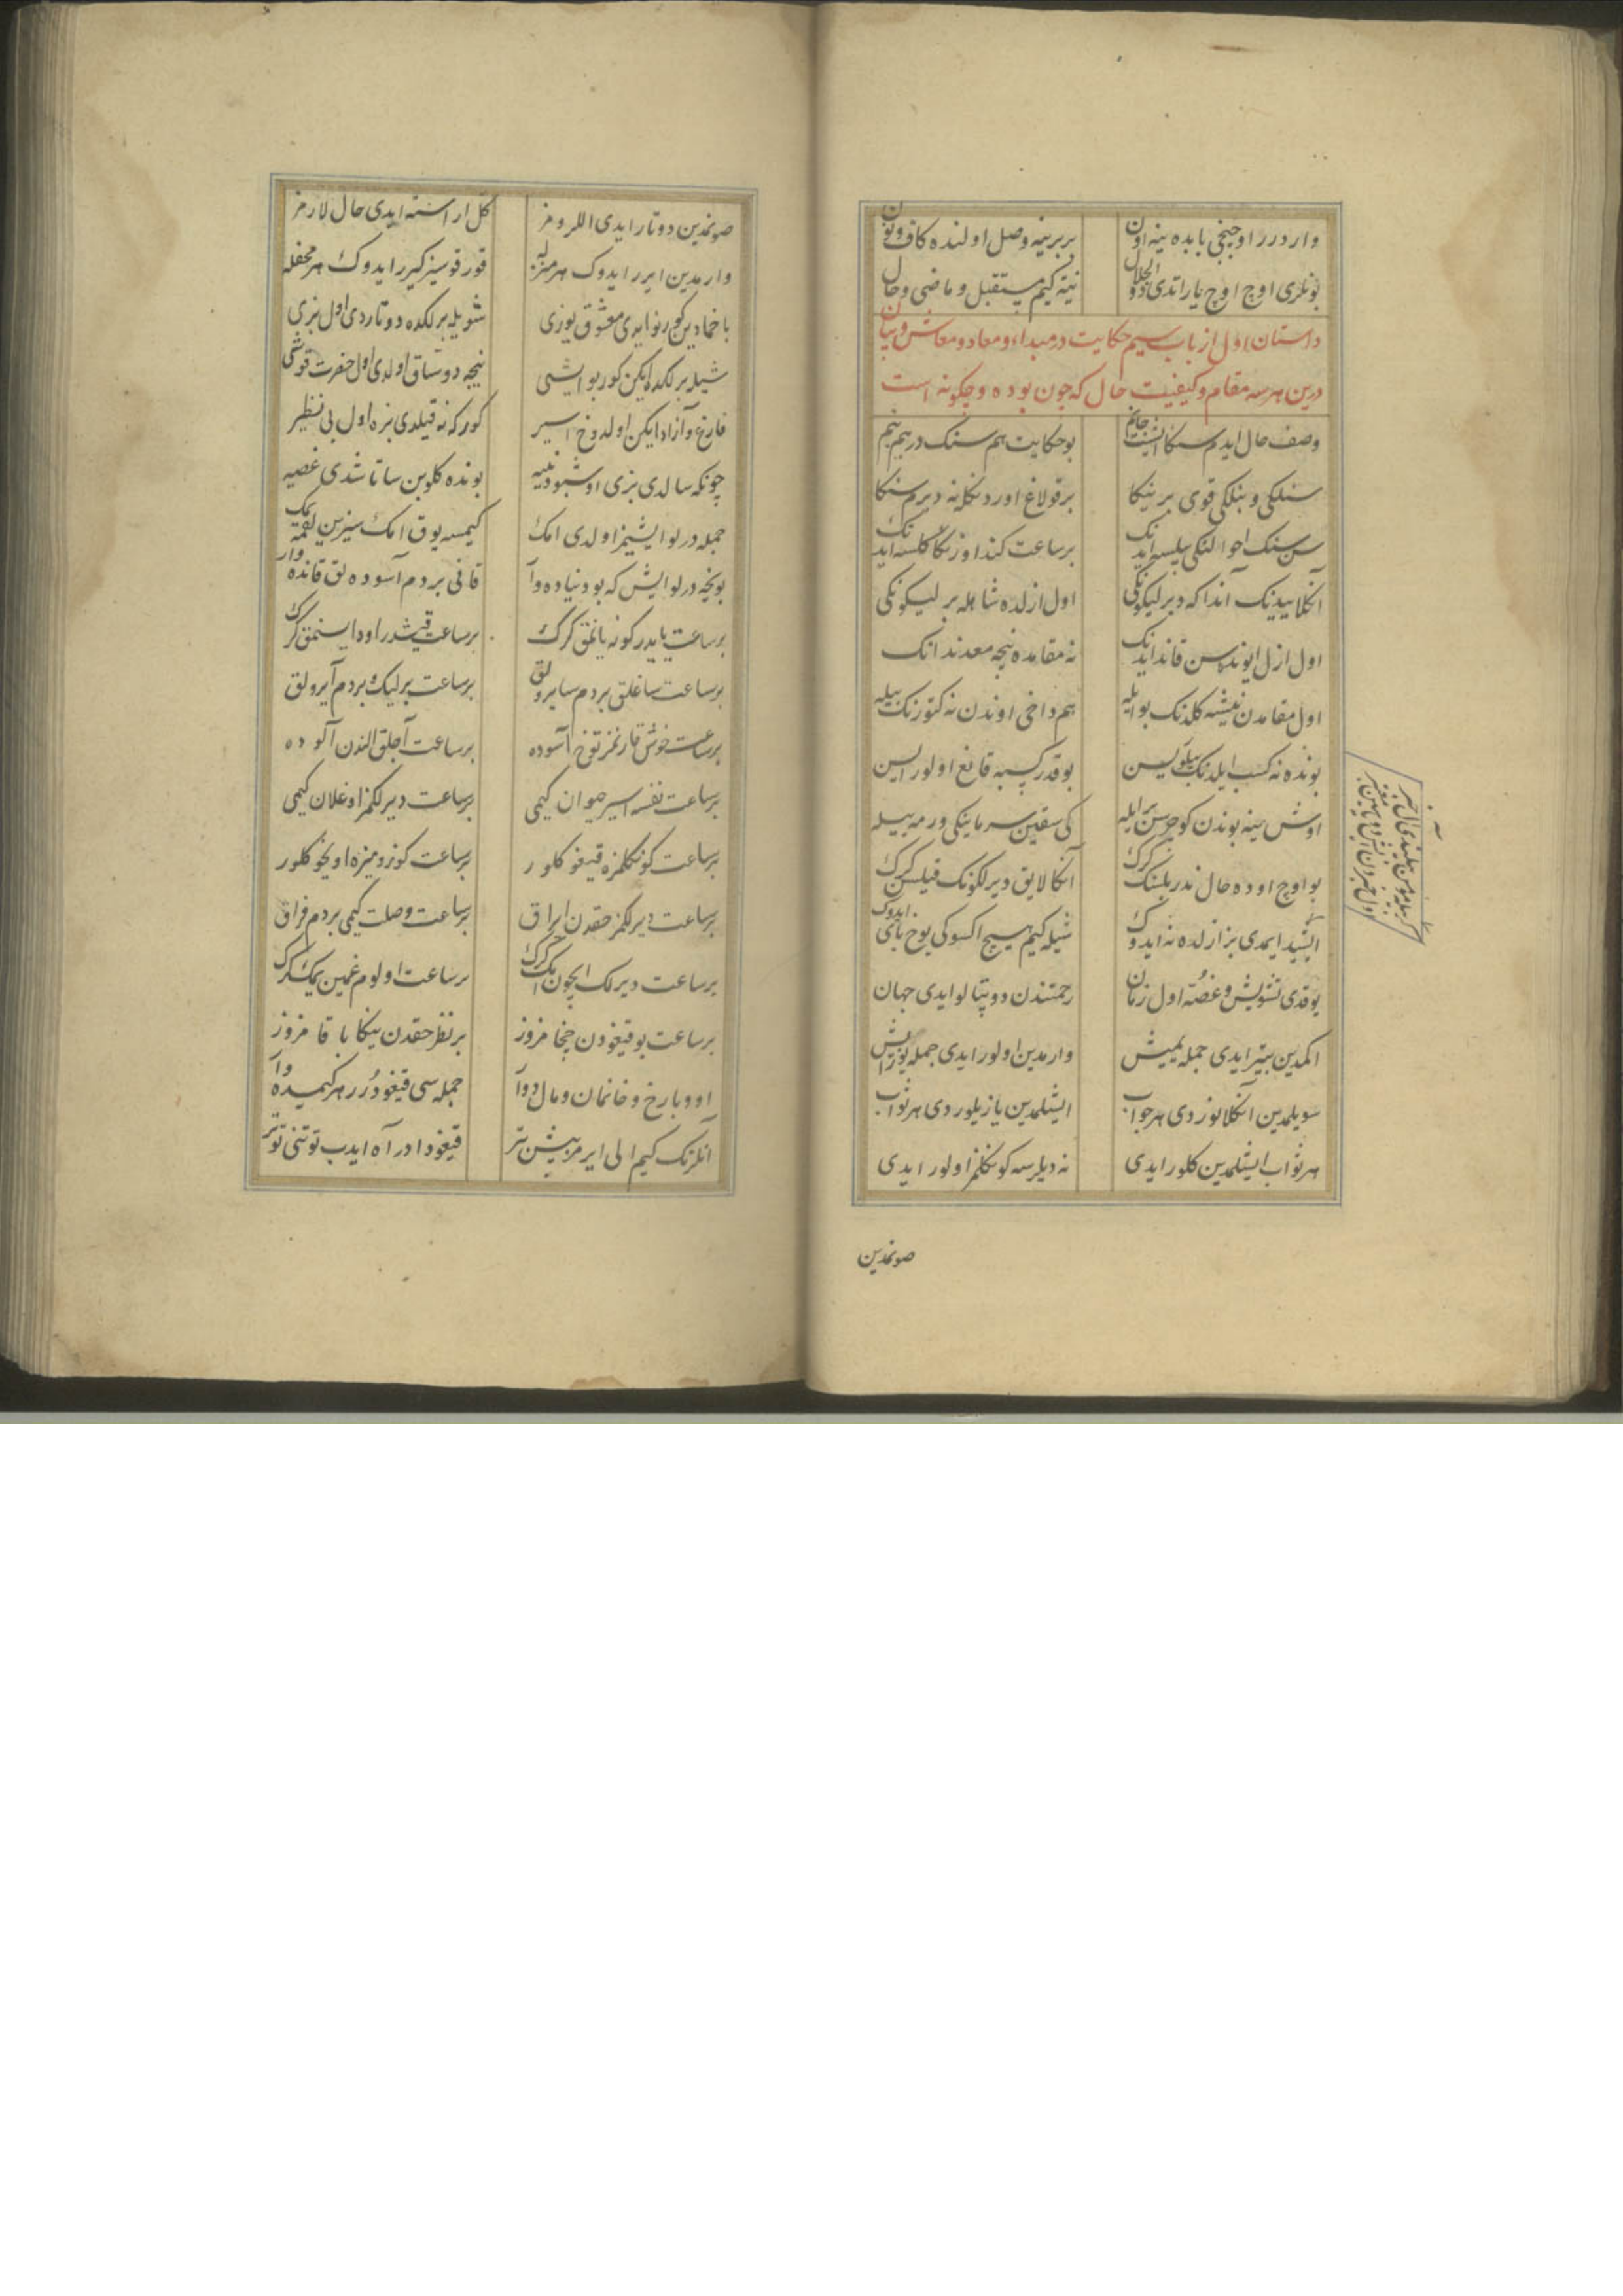 واردرر اوچنجی بابده ینه اون بربرینه وصل اولنده کاف و نون
بونلری اوچ اوچ یاراتدی ذو الجلال نیته کیم مستقبل و ماضی و حال
داستان اول از باب سیم حکایت در مبداء و معاد و معاش و بیان
درین هر سه مقام و کیفیت حال که چون بوده و چکونه است
وصف حال ایدم سنکا ایشیت جانم بوحکایت هم سنک در هم بنم
سنلکی و بنلکی قوی بر ینکا بر قولاغ اور دنکله نه دیرم سنکا
سن سنک احوالنکی بیلسه ایدنک بر ساعت کند اوزنکا کلسه ایدنک
آنکلاییدنک آندا که دیرلیکونکی اول ازلده شاهله بر لیکونکی
اول ازل ایونده سن قاندایدنک نه مقامده نیجه معدندانک
اول مقامدن نیشه کلدنک بوایله هم داخی اوندن نه کتورنک بیله
بونده نه کسب ایلدنک بیلویسن بو قدر کسبه قانع اولورایسن
اوش ینه بوندن کوچرسن ایله کی سقین سرماینکی ورمه ییله
بو اوچ اوده حال ندر بلسنک کرک آنکا لایق دیرلکونک قیلسن کرک
ایشید ایمدی بز ازلده نه ایدوک شیله کیم هیچ اکسوکی یوخ بای ایدوک
یوقدی تشویش و غصّه اول زمان رحمتندن دوپتالو ایدی جهان
اکمدین بیتر ایدی جمله یمیش وارمدین اولور ایدی جمله یوزایش
سویلمدین آنکلانوردی هر جواب ایشلمدین یازیلوردی هر ثواب
هر ثواب ایشلمدین کلور ایدی نه دیلرسه کونکلمز اولور ایدی
صونمدین
صونمدین دوتار ایدی اللرومز کل اراسته ایدی حال لارمز
وارمدین ایرر ایدوک هر منزله قورقوسیز کیرر ایدوک هر محفله
باخمادین کورنوایدی معشوق یوزی شویله برلکده دوتاردی اول بزی
شیله برلکده ایکن کور بو ایشی نیجه دوستاق اولدی اول حضرت قوشی
فارغ و آزاد ایکن اولدوخ اسیر کورکه نه قیلدی بزه اول بی نظیر
چونکه سالدی بزی اوشبو دنییه بونده کلوبن ساتاشدی غصیه
جمله درلو ایشیمز اولدی امک کیمسه یوق امک سیزین لقمه یمک
بونجه درلو ایش که بو دنیاده وار قانی بر دم آسوده لق قانده وار
بر ساعت یایدر کونه یانمق کرک بر ساعت قیشدر اودا ایسنمق کرک
بر ساعت ساغلق بر دم سایرولق بر ساعت برلیک و بر دم آیرولق
بر ساعت خوش قارنمز توخ آسوده بر ساعت آجلق الندن آکوده
بر ساعت نفسه اسیر حیوان کیمی بر ساعت دیرلکمز اوغلان کیمی
بر ساعت کونکلمزه قیغو کلور بر ساعت کوزومیزه اویخو کلور
بر ساعت دیرلکمز حقدن ایراق بر ساعت وصلت کیمی بر دم فراق
بر ساعت دیرلک ایچون امک کرک بر ساعت اولوم غمین یمک کرک
بر ساعت بو قیغودن چخامزوز بر نظر حقدن ینکا باقامزوز
او و بارخ و خانمان و مال و وار جمله سی قیغودُرر هر کیمده وار
آنلرنک کیم الی ایرمز پیش تر قیغودا در آه ایدب توتنی توتر